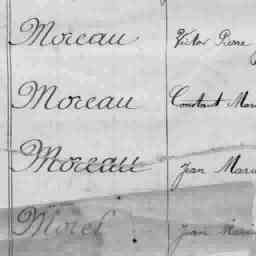 Moreau Victor Pierre
Moreau Constant Mari
Moreau Jean Marie
Morel Jean Marie